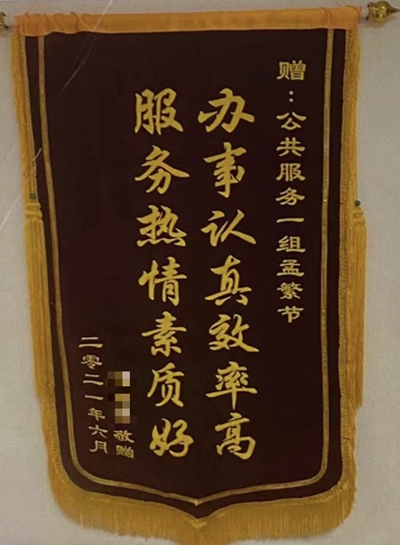 赠：公共服务一组孟繁节
办事认真效率高
服务热情素质好
敬赠
二零二一年六月